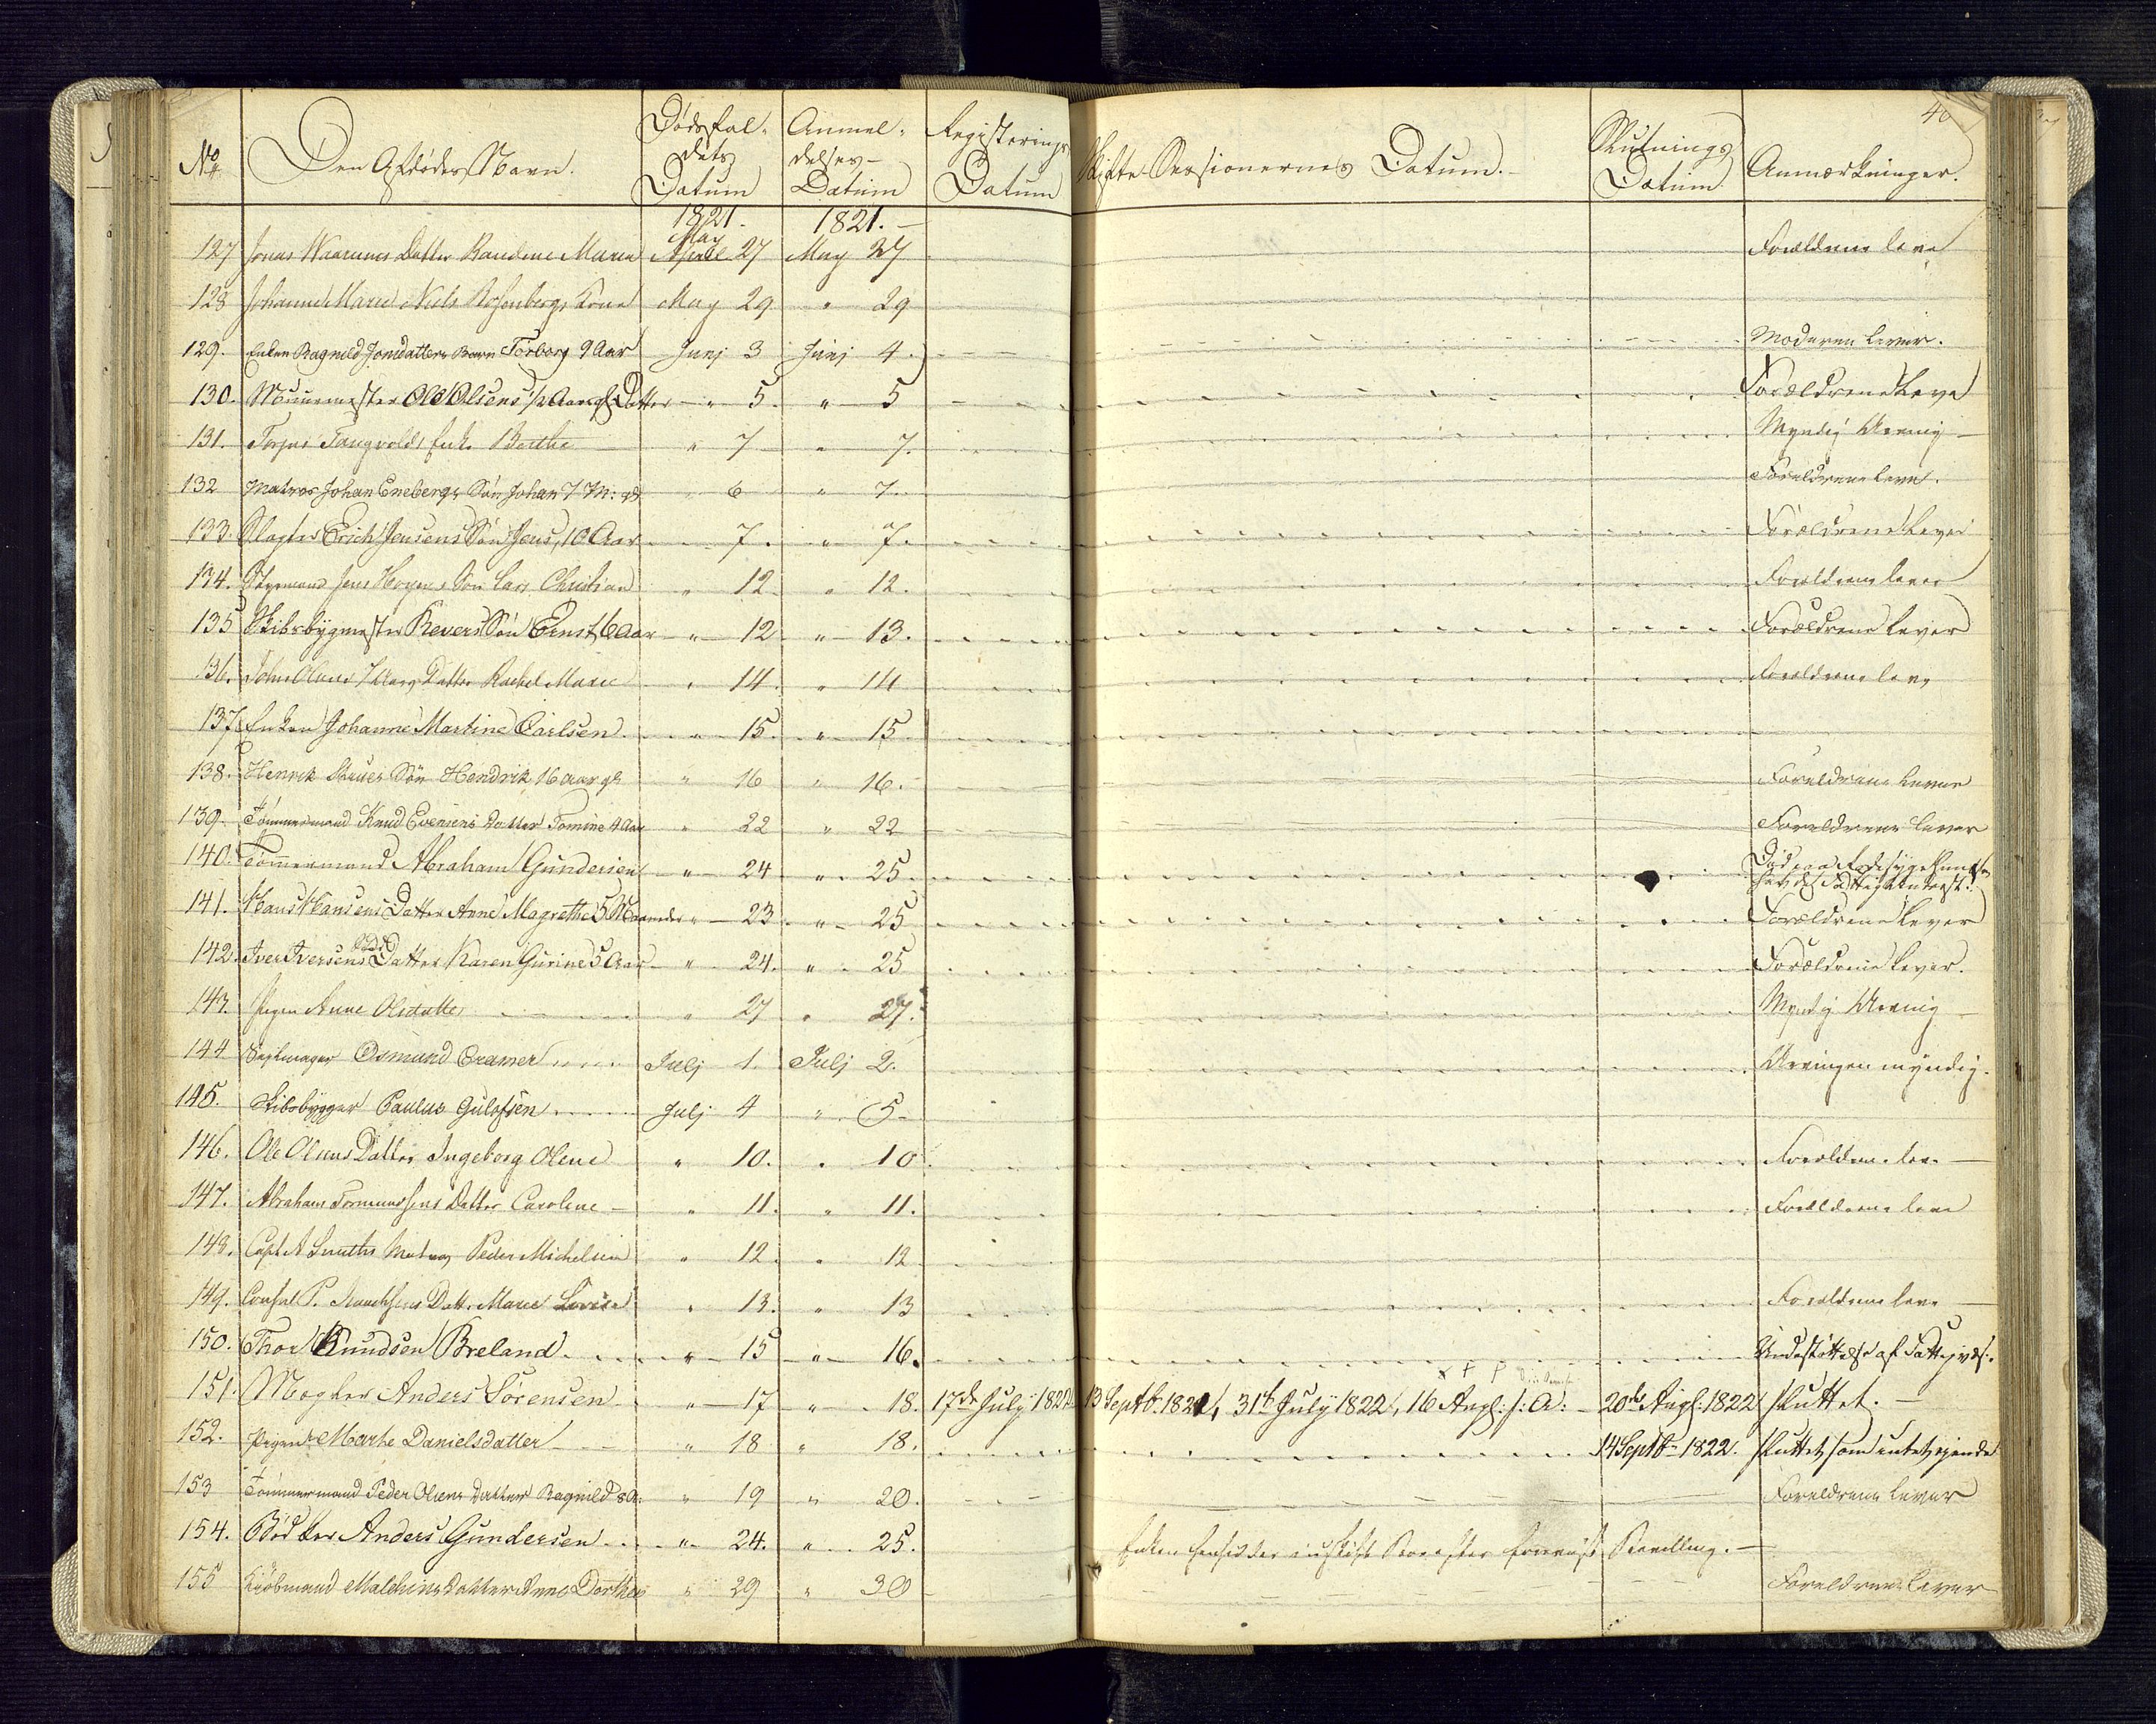 No Den Afdødes Navn. Dødsfaldets Datum Anmeldelses Datum Registerings Datum Skifte Sessionernes Datum. Slutnings Datum Anmærkninger. 40
1821. 1821.
127 Jonas Datter Marea May April 27 May 27 Forældrene leve
128 Johanne Marie Niels Rosenbergs Kone May 29 " 29
129. Enken Ragnild Jonsdatters Barn Torborg 9 Aar Junj 3 Junj 4. Moderen lever.
130. Muurmester Ole Olsens 1/2 Aar gl. Datter " 5. " 5 Forældrene Leve
131. Enke Berthe " 7 " 7. Myndig Arving
132 Matros Johan Enebergs Søn Johan 7 M: gl " 6 " 7. Forældrene leve.
133. Slagter Erich Jensens Søn Jens, 10 Aar 7. " 7. Forældrene Lever
134. Styrmand Jens Søn Lars Christian " 12 " 12. Forældrene leve
135 Skibsbygmester Kevers Søn Ernst, 6 Aar " 12 " 13. Forældrene Lever
136. John Olsens 7 Aars Datter Rachel Marie " 14. " 14 Forældrene leve
137. Enken Johanne Martine Carlsen. " 15. " 15.
138. Henrik Søn Hendrik 16 aar gl " 16 " 16. Forældrene Lever
139. Tømmermand Knud Evensens Datter Tomine 4 Aar " 22 " 22 Forældrene lever
140. Tømmermand Abraham Gundersen " 24 " 25. Død paa
141. Hans Hansens Datter Anne Magrethe 5 Maaneder " 23 " 25 Forældrene Lever
142. Iver Iversens Datter Karen Gurine 5 Aar " 24. " 25 Forældrene Lever.
143. Pigen Anne Olsdatter " 27 " 27. Myndig Arving
144 Seilmager Osmund Cramer Julj 1. Julj 2. Arvingen myndig.
145. Skibsbygger Paulus Gulofsen Julj 4 " 5
146. Ole Olsens Datter Ingeborg Olene " 10. " 10 Forældrene leve
147. Abraham Datter Caroline " 11. " 11. Forældrene leve
148. Capt. A Smiths Peder Michelsen " 12. " 12
149. Consul P. Datt. Maren Lovise " 13. " 13 Forældrene leve
150. Thor Knudsen Breland. " 15 " 16. Understøttelse af Fattigvæs:
151. Mægler Anders Sørensen " 17 " 18. 17de July 1822 13 Septb. 1821, 31te July 1822, 16 Augs: s: A: 20de Augs: 1822 sluttet.
152. Pigen Marthe Danielsdatter " 18 " 18. 14 Septbr 1822. sluttet som intet ejende
153 Tømmermand Peder Olsens Datter Ragnild 8 A: " 19 " 20. Forældrene lever
154. Bødker Anders Gundersen " 24. " 25. Enken hensidder i uskiftet Boe efter Bevilling.
155 Kiøbmand Malchins Datter Anne Dorthea " 29 " 30 Forældrene Lever